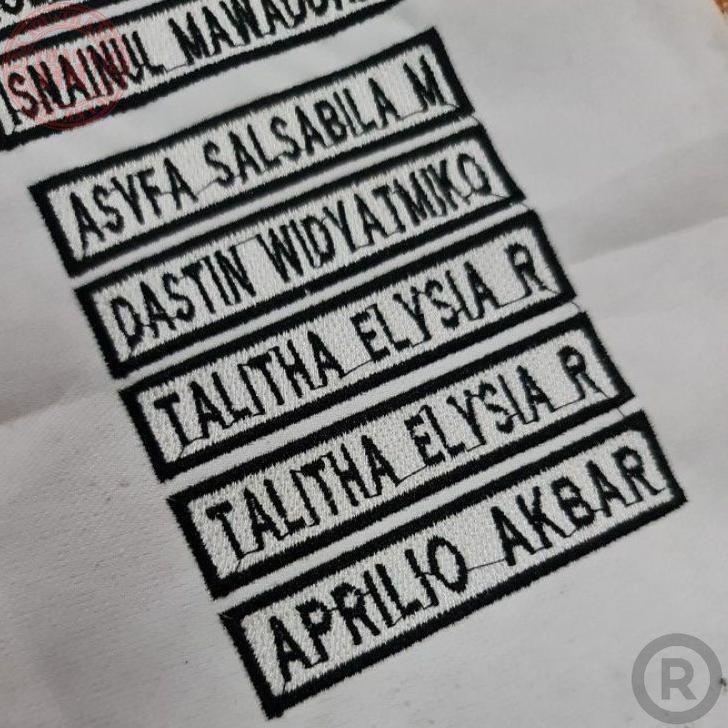 ISNAINUL MAWADDA
ASYFA SALSABILA M
DASTIN WIDYATMIKO
TALITHA ELYSIA R
TALITHA ELYSIA R
APRILIO AKBAR
R